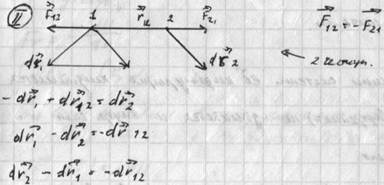 II F⃗12 1 r⃗12 2 F⃗21 F⃗12 = -F⃗21
dr⃗1 dr⃗2
-dr⃗1 + dr⃗12 = dr⃗2
dr⃗1 - dr⃗2 = -dr⃗12
dr⃗2 - dr⃗1 = -dr⃗12